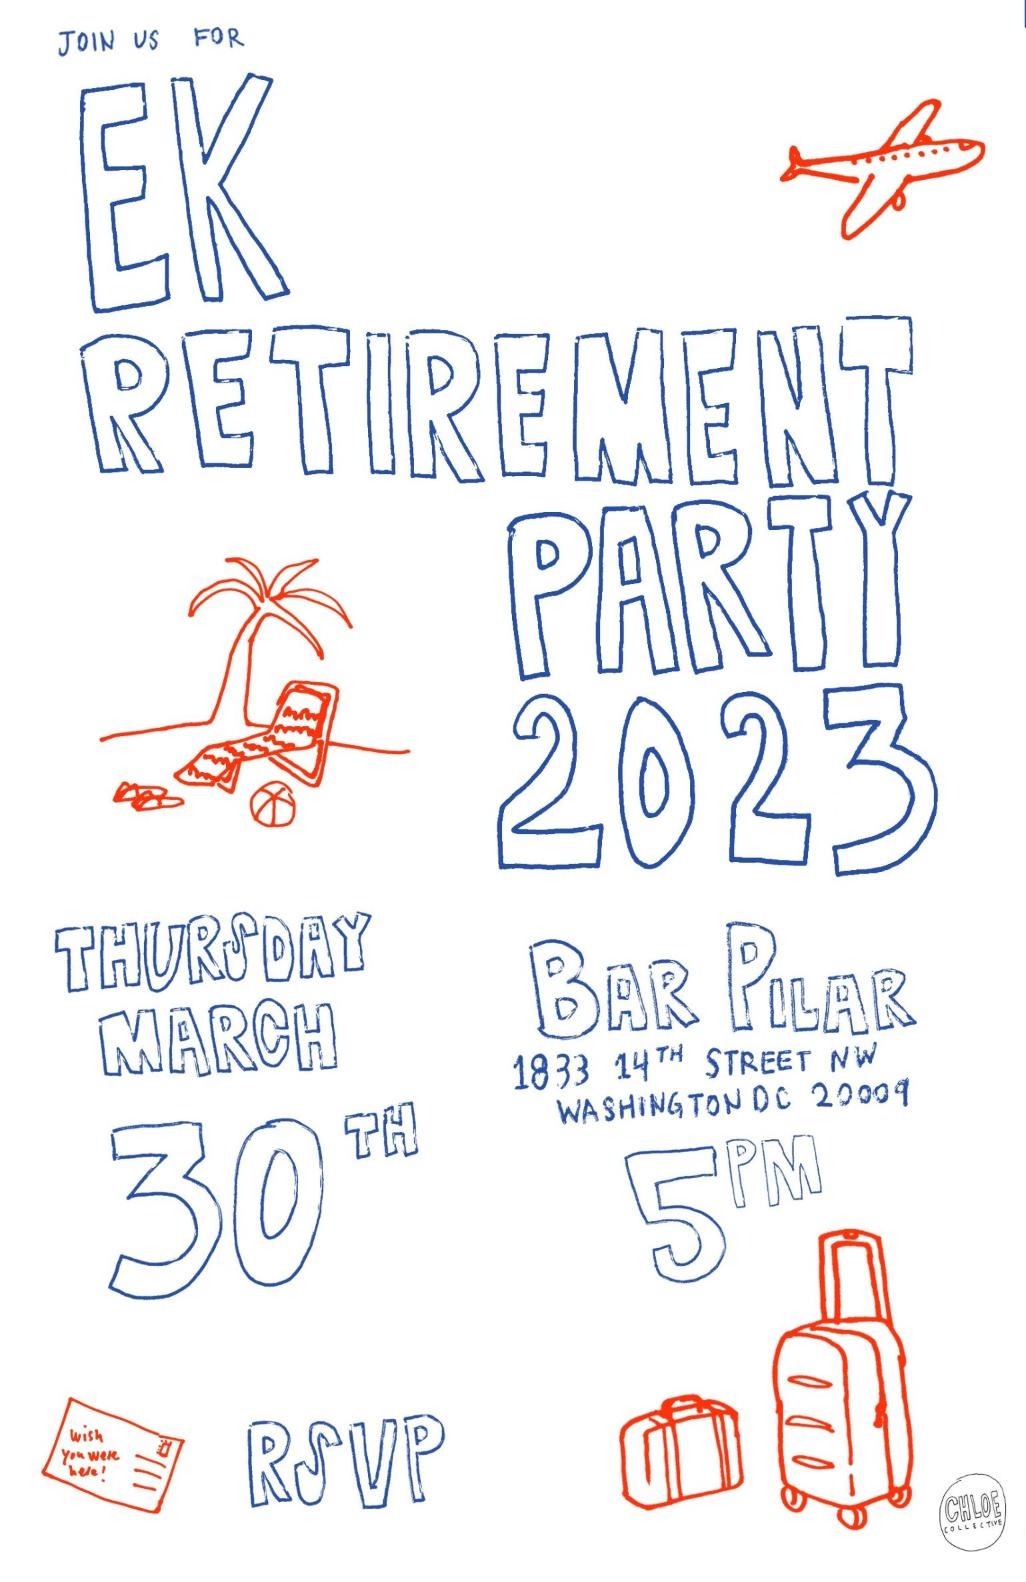 JOIN US FOR
EK
RETIREMENT
PARTY
2023
THURSDAY
MARCH
30TH
BAR PILAR
1833 14TH STREET NW
WASHINGTON DC 20009
5PM
wish
you were
here!
RSVP
CHLOE
COLLECTIVE